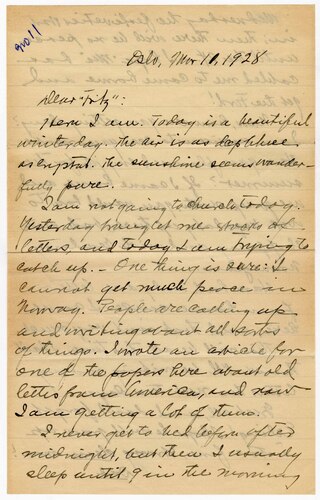 Oslo, Nov 10, 1928
Dear "Fritz":
Here I am. Today is a beautiful
winterday. The air is as
as crystal. The sunshine seems wonder-
fully pure.
I am not going to church today.
Yesterday brought me stacks of
letters and today I am trying to
catch up. - One thing is sure: I
cannot get much peace in
Norway. People are calling up
and writing about all sorts
of things. I wrote an article for
one of the papers here about old
letters from America, and now
I am getting a lot of them.
I never get to bed before after
midnight, but then I usually
sleep until 9 in the morning